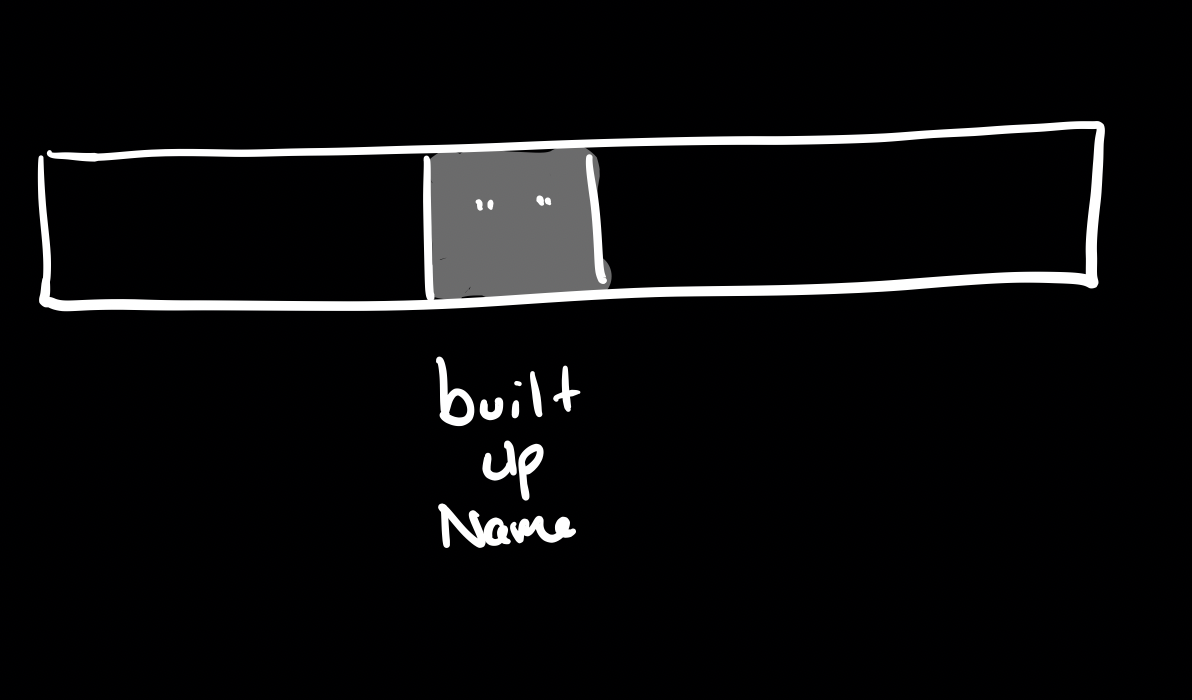 " "
built
up
Name